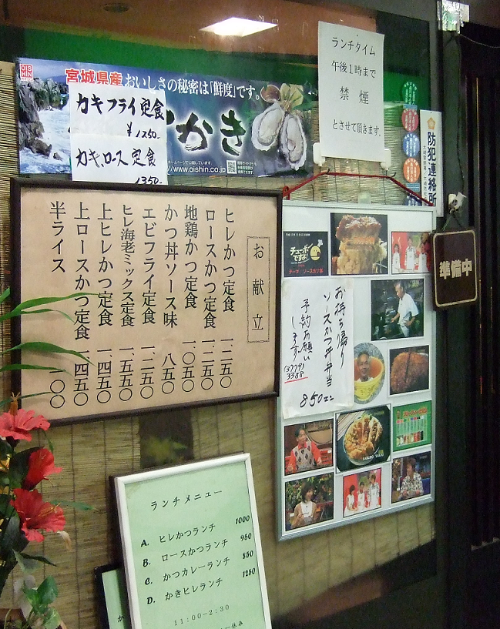 宮城県産 おいしさの秘密は「鮮度」です。
かき
www.oishin.co.jp
カキフライ定食
¥1250
カキロース定食
1350
ランチタイム
午後1時まで
禁煙
とさせて頂きます。
防犯連絡所
準備中
お献立
ヒレかつ定食 一、二五〇
ロースかつ定食 一、二五〇
地鶏かつ定食 一、〇五〇
かつ丼ソース味 八五〇
エビフライ定食 一、二五〇
ヒレ海老ミックス定食 一、五五〇
上ヒレかつ定食 一、四五〇
上ロースかつ定食 一、四五〇
半ライス 一〇〇
お持ち帰り
ソースかつ弁当
850
予約お願い
します。
ランチメニュー
A. ヒレかつランチ 1000
B. ロースかつランチ 950
C. かつカレーランチ 850
D. かきヒレランチ 1250
11:00-2:30